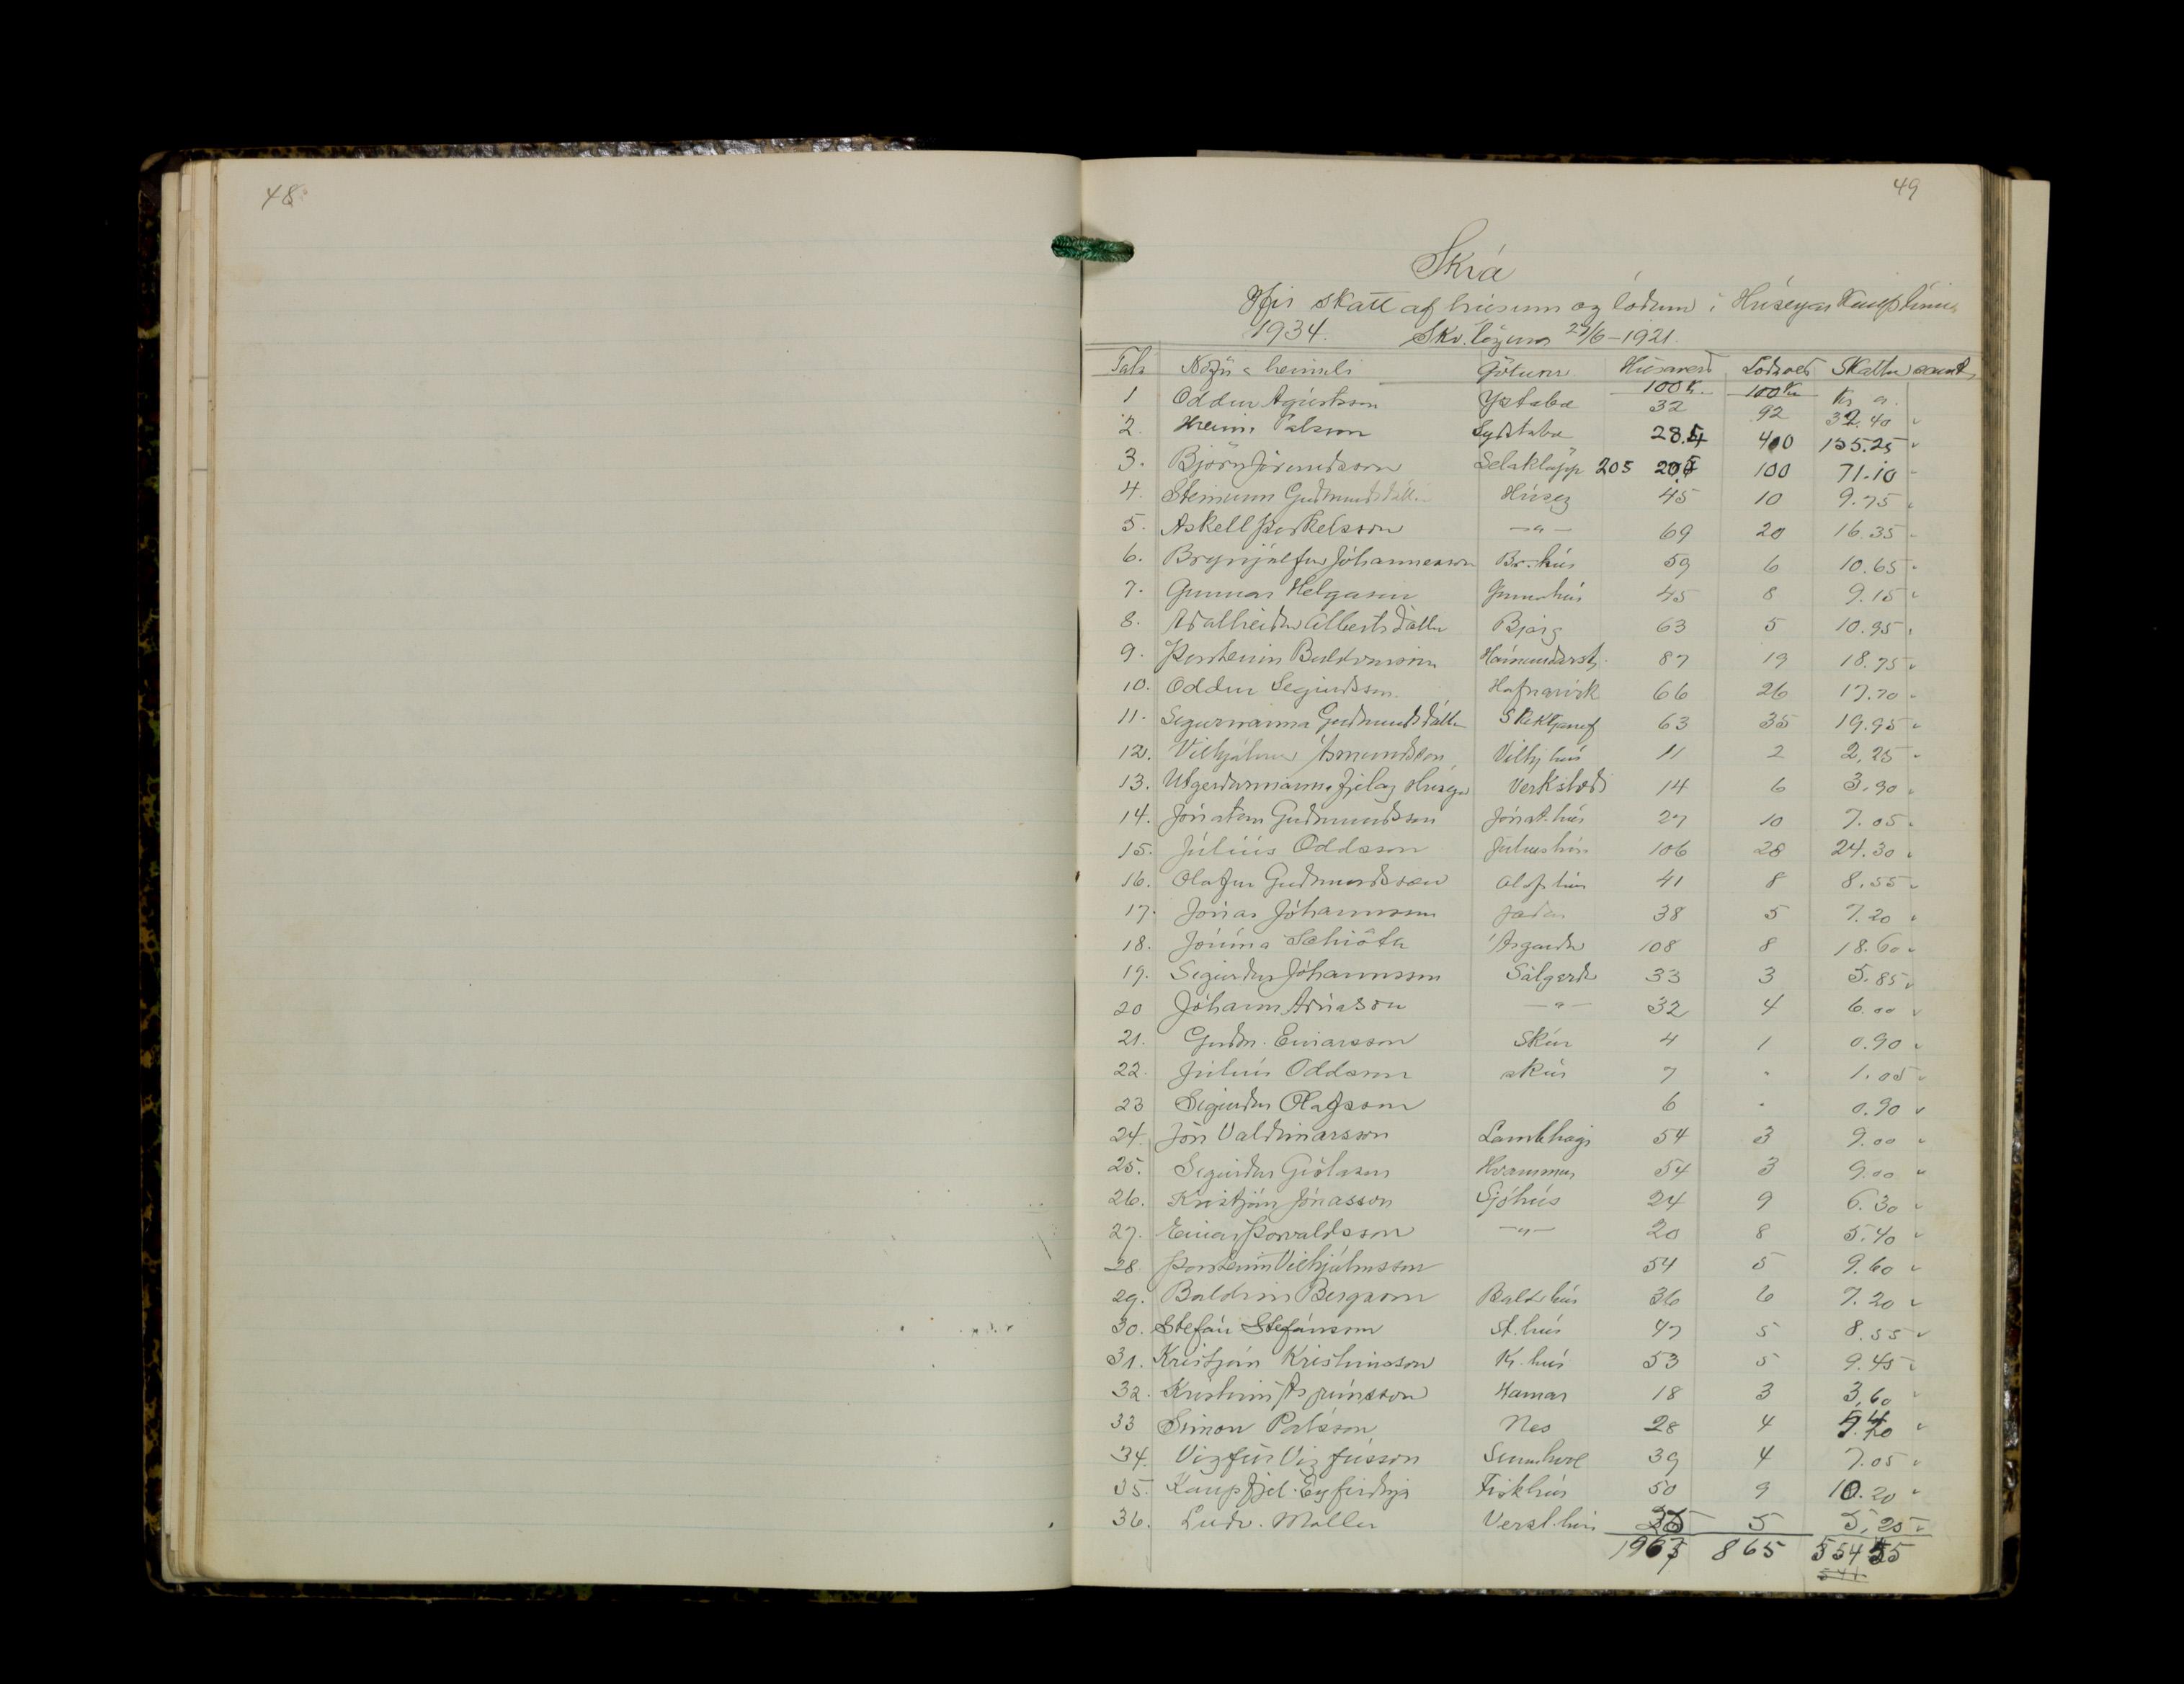 48
49
Skrá
Yfir skatt af húsum og lóðum í Hríseyar Kauptúni
1934. Skv. lögum 27/6-1921.
Tala Nöfn a heimili Götunr Húsaverð Lóðaverð Skattur samt.
100 K. 100 Kr Kr a.
1 Oddur Agústsson Yztabæ 32 92 32.40
2. Hreinn Pálsson Sydstabæ 28.4 400 155.25
3. Björn Jörundsson Selaklöpp 205 100 71.10
4. Steinunn Guðmundsdóttir Hrísey 45 10 9.75
5. Askell Þorkelsson —"— 69 20 16.35
6. Brynjólfur Jóhannesson Br.-hús 59 6 10.65
7. Gunnar Helgason Gunnahús 45 8 9.15
8. Aðalheiður Albertsdóttir Bjarg 63 5 10.95
9. Þorsteinn Baldvinsson Hámundarst. 87 19 18.75
10. Oddur Sigurðsson Hafnarvík 66 26 17.70
11. Sigurnanna Guðmundsdóttir 63 35 19.95
12. Vilhjálmur Ásmundsson Vilhj hús 11 2 2,25
13. Utgerðarmannafjelag Hríseyar Verkstæði 14 6 3.90
14. Jónatan Guðmundsson Jónat.hús 27 10 7.05
15. Júlíús Oddsson Juliushús 106 28 24.30
16. Olafur Guðmundsson Olafshús 41 8 8.55
17. Jónas Jóhannsson Jaðar 38 5 7.20
18. Jónína Schiöth Ásgarður 108 8 18.60
19. Sigurður Jóhannsson Sólgerði 33 3 5.85
20 Jóhann Árnason —"— 32 4 6.00
21. Guðm. Einarsson Skúr 4 1 0.90
22. Júlíús Oddsson skúr 7 . 1.05
23 Sigurður Olafsson 6 . 0.90
24. Jón Valdimarsson Lambhagi 54 3 9.00
25. Sigurður Gíslason Hvammur 54 3 9.00
26. Kristján Jónasson Sjóhús 24 9 6.30
27. Einar Þorvaldsson —"— 20 8 5.40
28 Þorsteinn Vilhjálmsson 54 5 9.60
29. Baldvin Bergsson Baldv.hús 36 6 7.20
30. Stefán Stefánsson St. hús 47 5 8.55
31. Kristján Kristinsson Kr. hús 53 5 9.45
32. Kristinn Asgrímsson Hamar 18 3 3,60
33 Simon Pálsson Nes 28 4 5.40
34. Vigfús Vigfússon Sunnuhvol 39 4 7.05
35. Kaupfjel. Eyfirðinga Fiskhús 50 9 10.20
36. Luðv. Möller Verzl.hús 5 5.25
1967 865 554 55
541